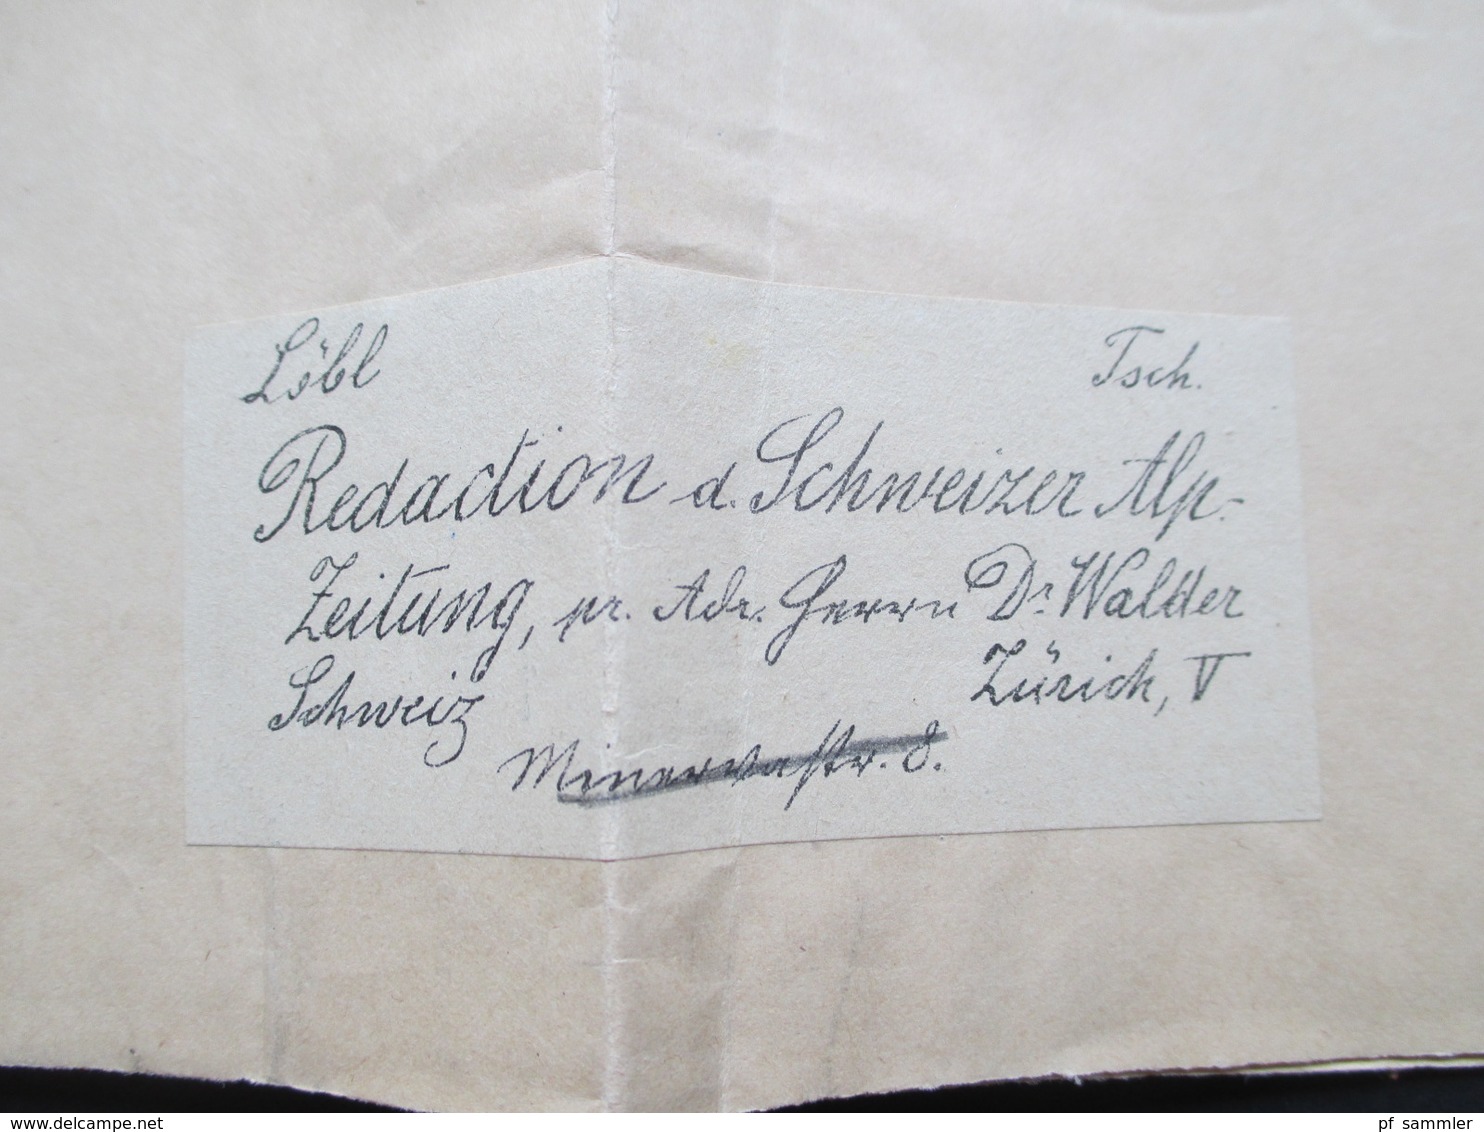 Löbl Tsch.
Redaction d. Schweizer Alp-
Zeitung, pr. Adr. Herrn Dr. Walder
Schweiz Zürich, V
Minervastr. 8.
delcampe.net
pf_sammler